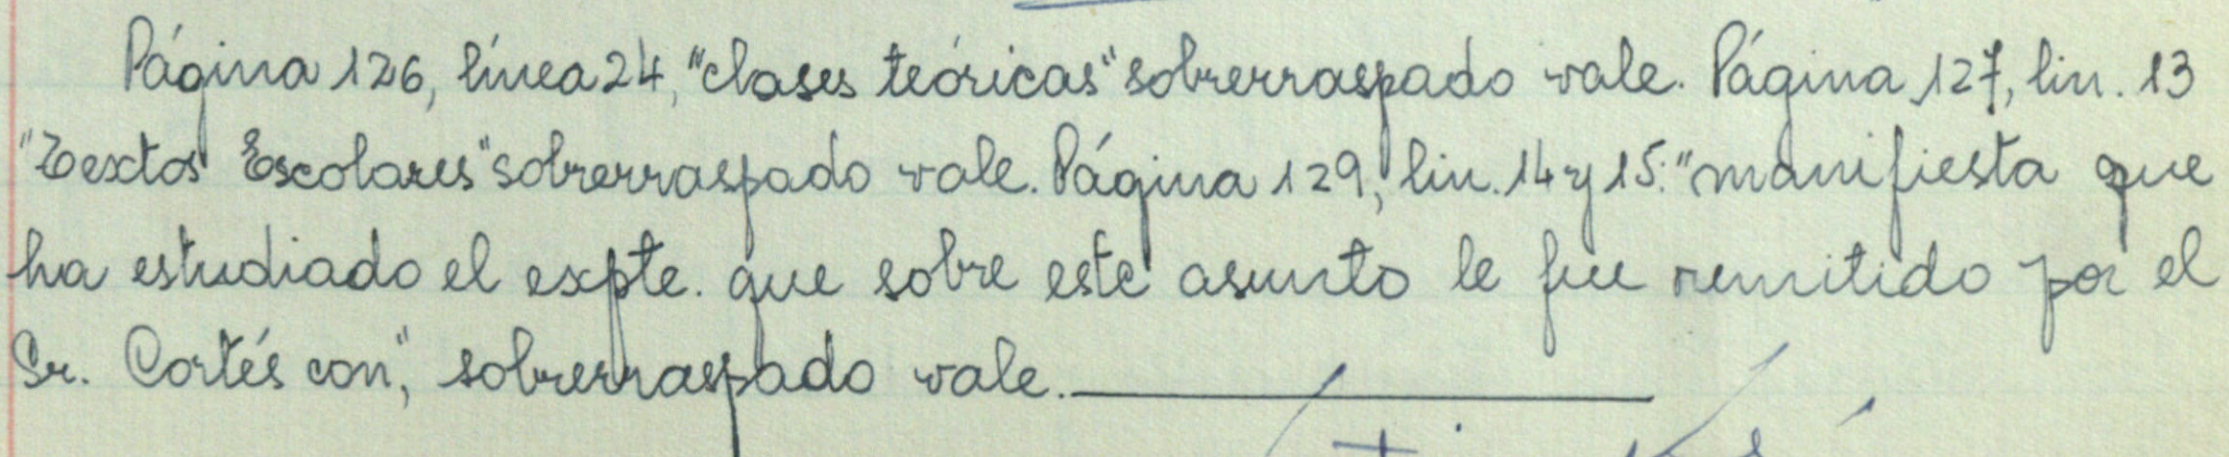 Página 126, línea 24, "clases teóricas" sobrerraspado vale. Página 127, lin. 13
"Textos Escolares" sobrerraspado vale. Página 129, lin. 14 y 15: "manifiesta que
ha estudiado el expte. que sobre este asunto le fue remitido por el
Sr. Cortés con", sobrerraspado vale.